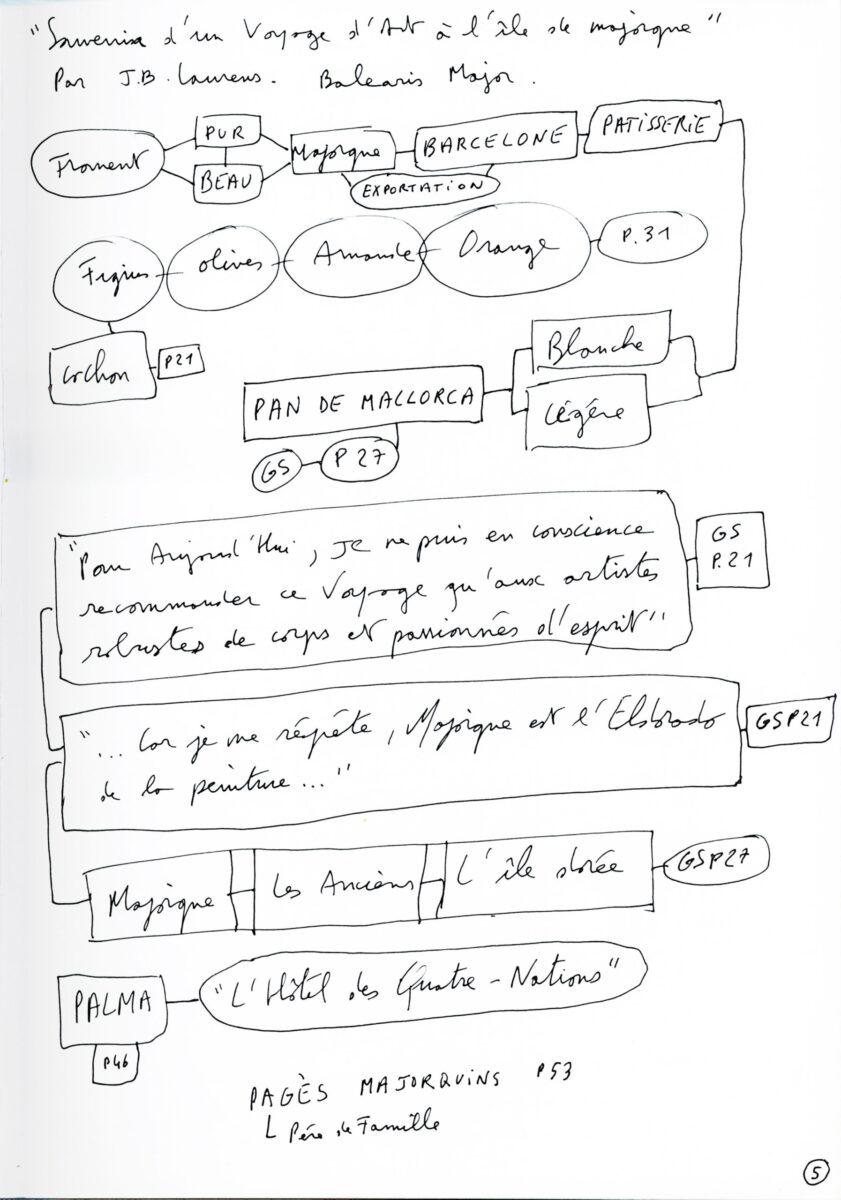 "Souvenirs d'un Voyage d'Art à l'île de majorque"
Par J.B. Laurens. Balearis Major.
Froment PUR BEAU Majorque BARCELONE PATISSERIE
EXPORTATION
Figues olives Amande Orange P.31
Cochon P21
Blanche
PAN DE MALLORCA Légére
GS P 27
"Pour Aujourd'Hui, Je ne puis en conscience
recommander ce Voyage qu'aux artistes
robustes de corps et passionnés d'esprit"
GS
P.21
"... Car je me répète, Majorque est l'Eldorado
de la peinture..."
GSP21
Majorque Les Anciens L'île dorée GSP27
PALMA "L'Hôtel des Quatre-Nations"
P46
PAGÈS MAJORQUINS P53
L Père de Famille
5